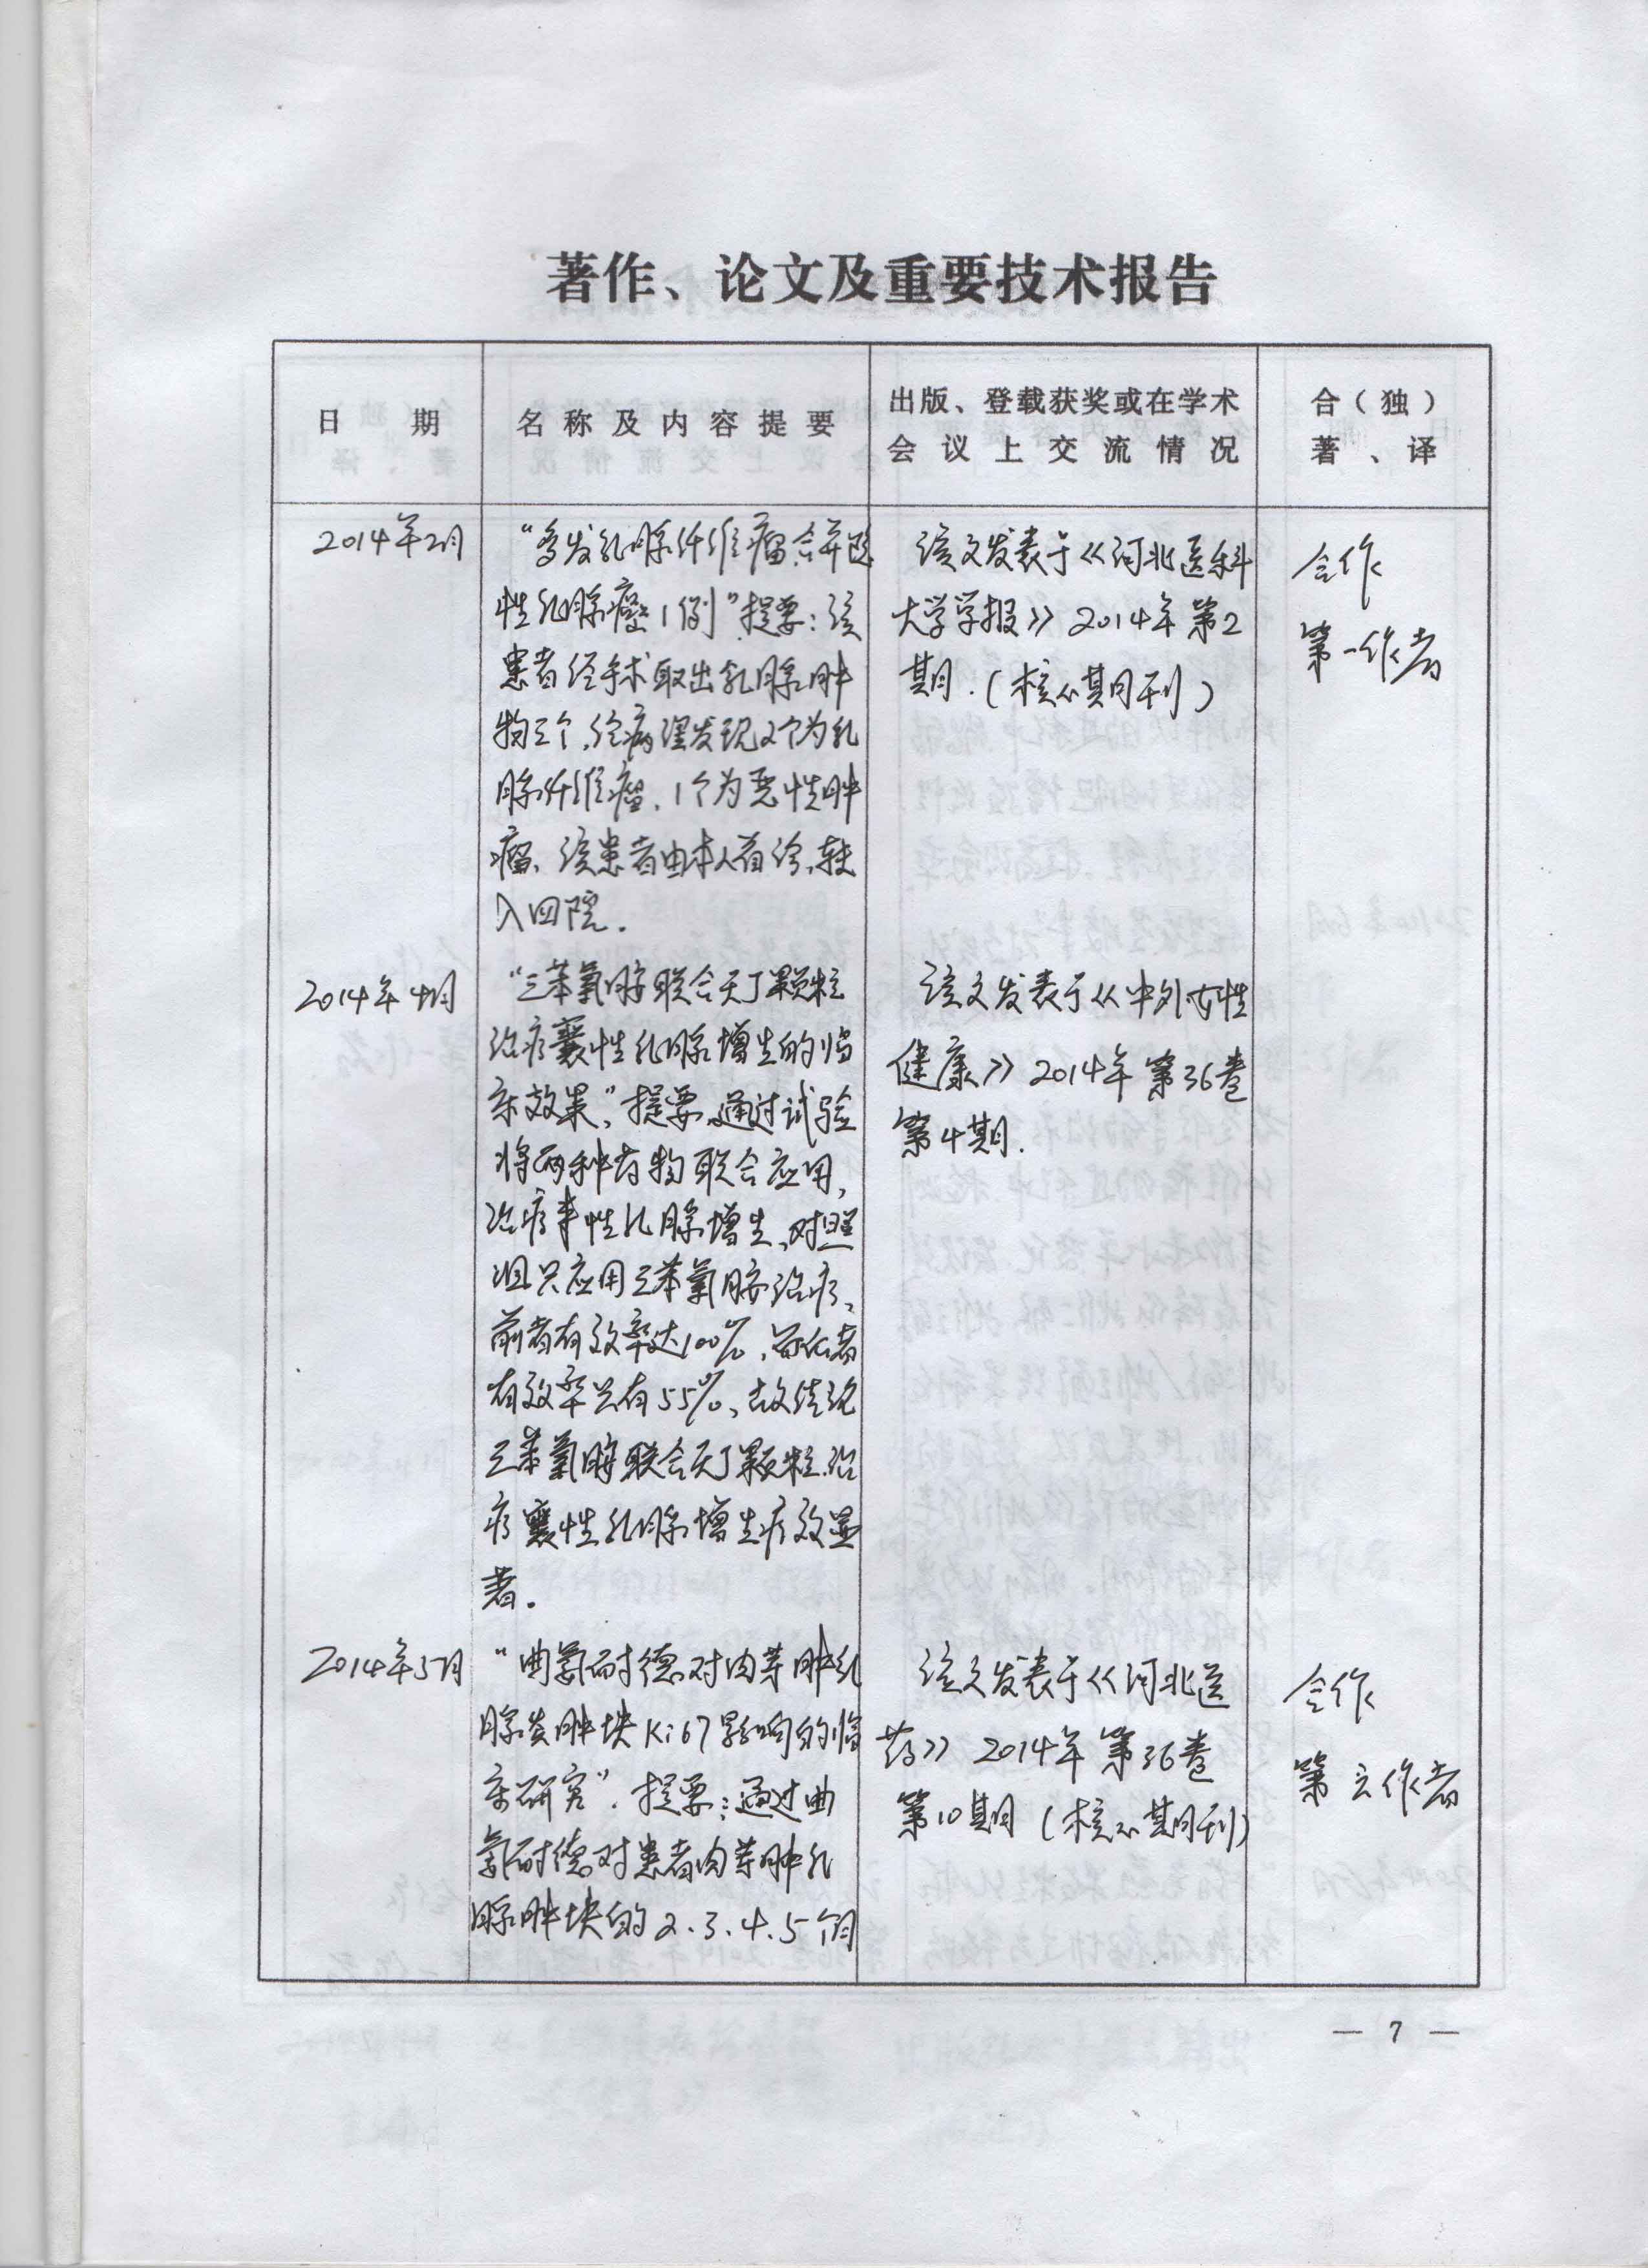 著作、论文及重要技术报告
日 期
名称及内容提要
出版、登载获奖或在学术
会议上交流情况
合（独）
著、译
2014年2月
“多发乳腺纤维瘤合并恶
性乳腺癌1例”提要：该
患者经手术取出乳腺肿
物三个，经病理发现2个为乳
腺纤维瘤，1个为恶性肿
瘤、该患者由本人首诊，转
入四院.
该文发表于《河北医科
大学学报》2014年第2
期.（核心期刊）
合作
第一作者
2014年4月
“三苯氧胺联合天丁颗粒
治疗囊性乳腺增生的临
床效果”提要，通过试验
将两种药物联合应用，
治疗 性乳腺增生、对照
组只应用三苯氧胺治疗、
前者有效率达100%，而后者
有效率只有55%、故结论
三苯氧胺联合天丁颗粒治
疗囊性乳腺增生疗效显
著.
该文发表于《中外女性
健康》2014年第36卷
第4期.
2014年5月
“曲氯耐德对肉芽肿乳
腺炎肿块Ki67影响的临
床研究”.提要：通过曲
氯耐德对患者肉芽肿乳
腺肿块的2.3.4.5个月
该文发表于《河北医
药》2014年第36卷
第10期（核心期刊）
合作
第 作者
— 7 —